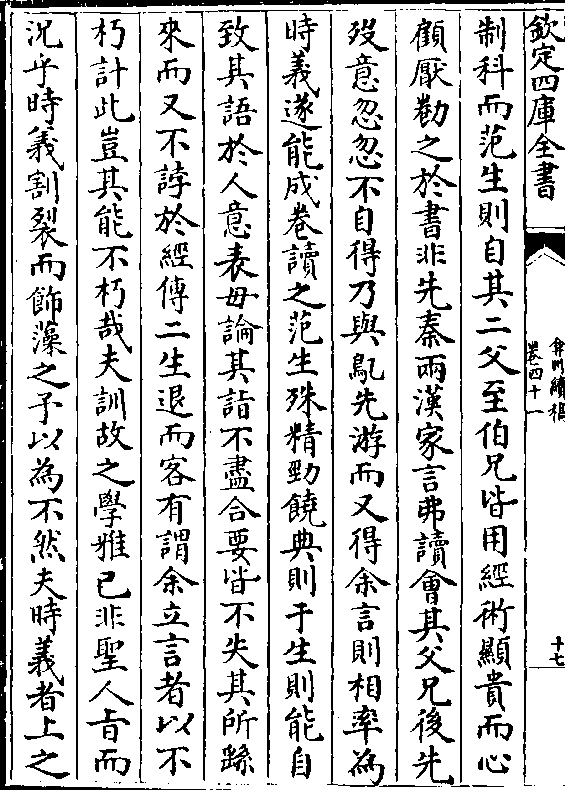 欽定四庫全書
弇州續稿
卷四十一
十七
制科而范生則自其二父至伯兄皆用經術顯貴而心
顧厭勸之於書非先秦兩漢家言弗讀會其父兄後先
歿意忽忽不自得乃與鳦先游而又得余言則相率為
時義遂能成卷讀之范生殊精勁饒典則于生則能自
致其語於人意表毋論其詣不盡合要皆不失其所繇
來而又不誖於經傳二生退而客有謂余立言者以不
朽計此豈其能不朽哉夫訓故之學雅已非聖人㫖而
況乎時義割裂而飾藻之予以為不然夫時義者上之